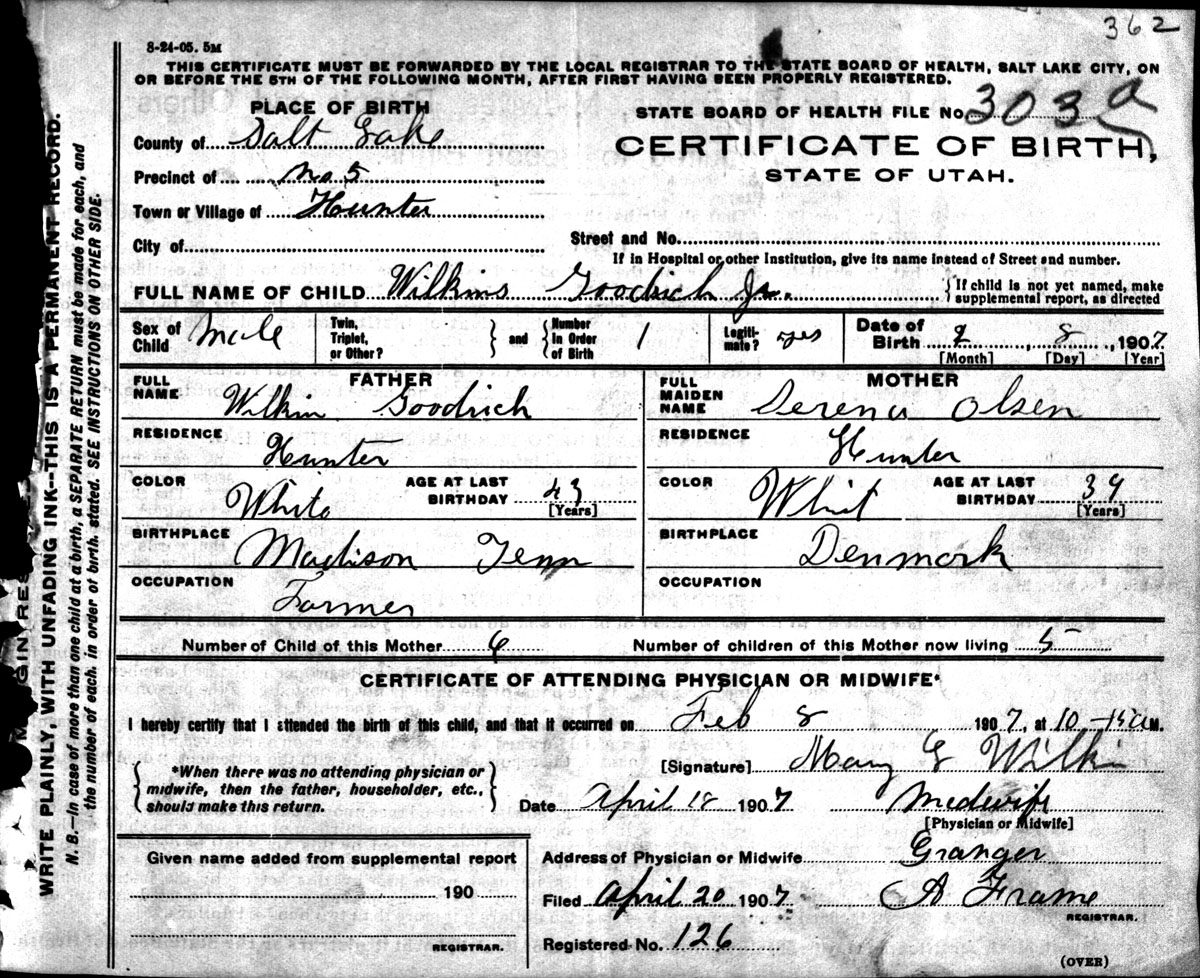 362
8-24-05. 5M
THIS CERTIFICATE MUST BE FORWARDED BY THE LOCAL REGISTRAR TO THE STATE BOARD OF HEALTH, SALT LAKE CITY, ON
OR BEFORE THE 5TH OF THE FOLLOWING MONTH, AFTER FIRST HAVING BEEN PROPERLY REGISTERED.
PLACE OF BIRTH
STATE BOARD OF HEALTH FILE No. 303 a
County of Salt Lake
CERTIFICATE OF BIRTH,
STATE OF UTAH.
Precinct of No 5
Town or Village of Hunter
City of
Street and No.
If in Hospital or other Institution, give its name instead of Street and number.
FULL NAME OF CHILD Wilkins Goodrich Jr.
If child is not yet named, make
supplemental report, as directed
Sex of Child Male
Twin, Triplet, or Other?
and
Number in Order of Birth 1
Legitimate? yes
Date of Birth 2, 8, 1907
[Month] [Day] [Year]
FATHER
FULL NAME Wilkin Goodrich
RESIDENCE Hunter
COLOR White
AGE AT LAST BIRTHDAY 43
[Years]
BIRTHPLACE Madison Tenn
OCCUPATION Farmer
MOTHER
FULL MAIDEN NAME Serena Olsen
RESIDENCE Hunter
COLOR Whit
AGE AT LAST BIRTHDAY 39
[Years]
BIRTHPLACE Denmark
OCCUPATION
Number of Child of this Mother 6
Number of children of this Mother now living 5
CERTIFICATE OF ATTENDING PHYSICIAN OR MIDWIFE*
I hereby certify that I attended the birth of this child, and that it occurred on Feb 8 1907, at 10 M.
*When there was no attending physician or
midwife, then the father, householder, etc.,
should make this return.
[Signature] Mary E Wilkin
Date April 18 1907 Midwife
[Physician or Midwife]
Given name added from supplemental report
190
REGISTRAR.
Address of Physician or Midwife Granger
Filed April 20 1907 A Frame
REGISTRAR.
Registered No. 126
(OVER)
WRITE PLAINLY, WITH UNFADING INK--THIS IS A PERMANENT RECORD.
N. B.--In case of more than one child at a birth, a SEPARATE RETURN must be made for each, and
the number of each, in order of birth, stated. SEE INSTRUCTIONS ON OTHER SIDE.